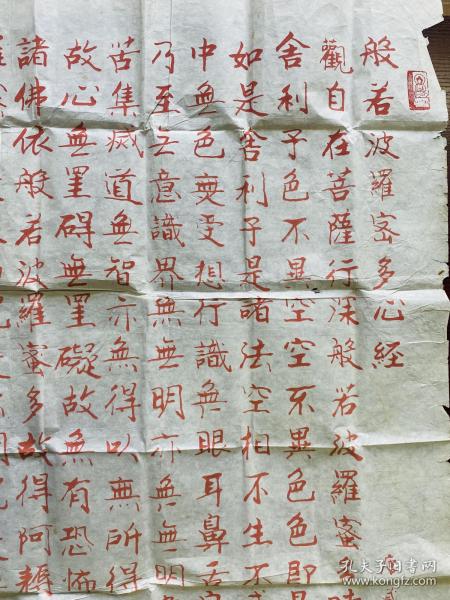 般若波羅密多心経
觀自在菩薩行深般若波羅蜜
舍利子色不異空空不異色色即
如是舍利子是諸法空相不生不
中無色無受想行識無眼耳鼻舌
乃至无意識界無無明亦無無明
苦集滅道無智亦無得以無所得
故心無罣碍無罣礙故無有恐怖
諸佛依般若波羅蜜多故得阿耨
孔夫子旧书网
kongfz.com